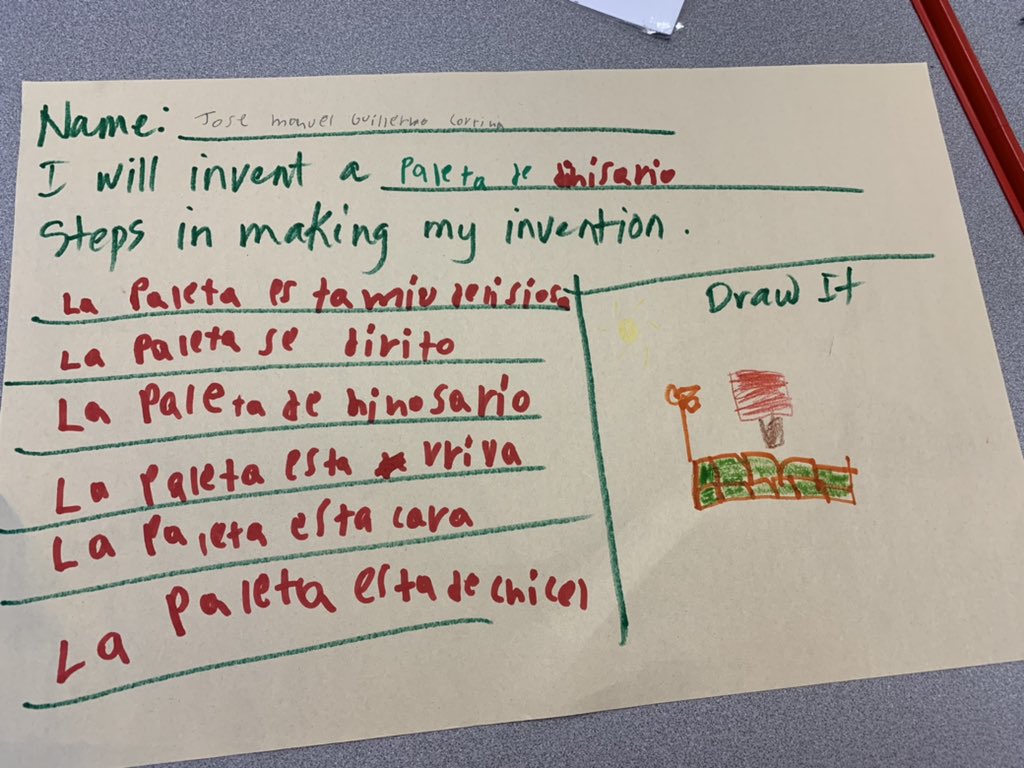 Name: Jose manuel Guillermo
I will invent a Paleta de dinisario
Steps in making my invention.
La Paleta es ta miu
La Paleta se dirito
La Paleta de hinosario
La Paleta esta vriva
La Paleta esta cara
La Paleta esta de chicel
Draw It